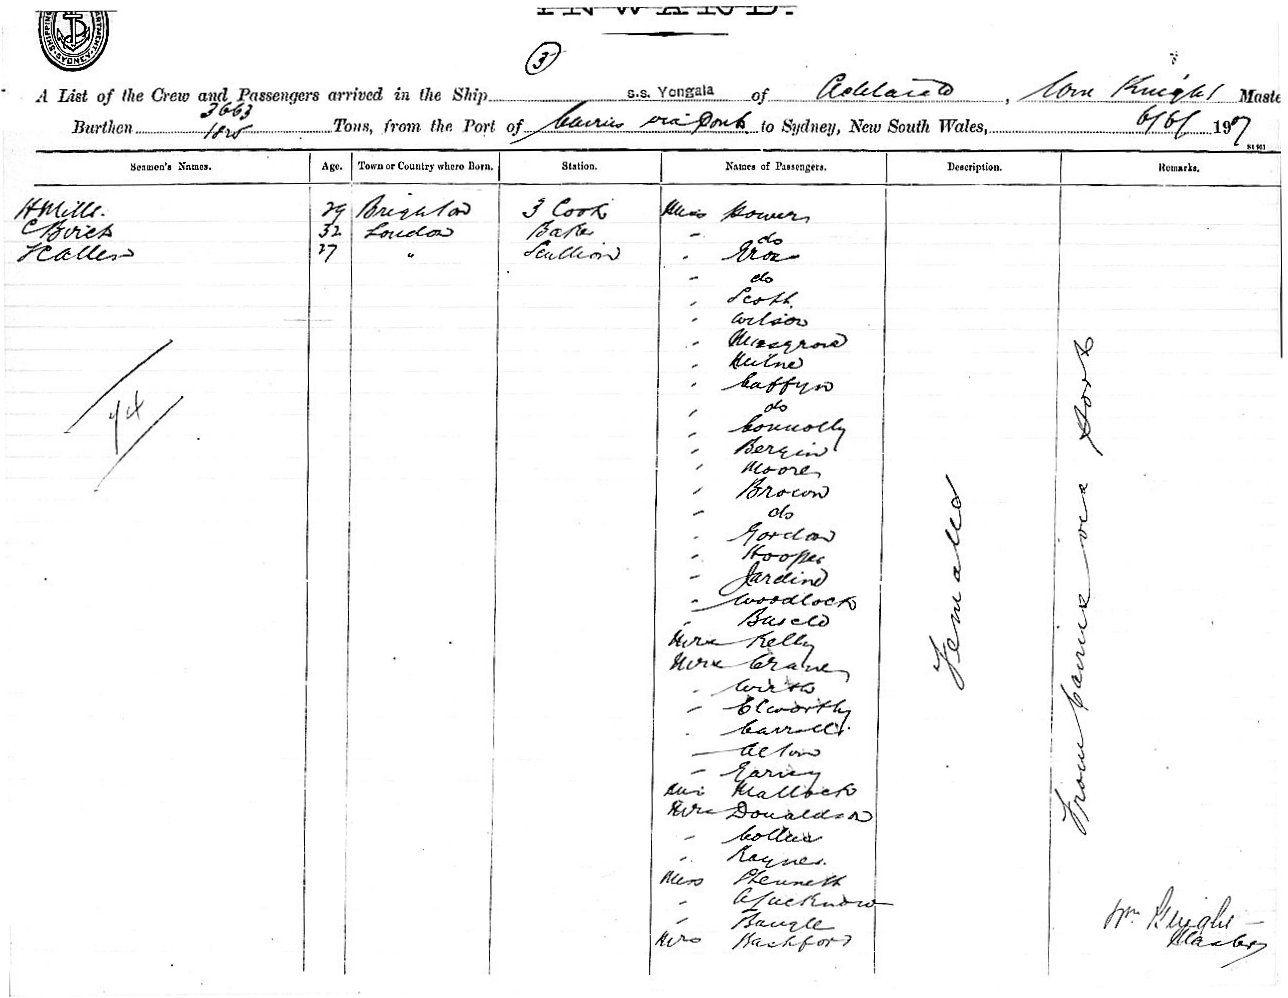 INWARD.
3
A List of the Crew and Passengers arrived in the Ship s.s. Yongala of Adelaide, Wm Knight Maste
Burthen 3663 1825 Tons, from the Port of Cairns via Ports to Sydney, New South Wales, 6/6/ 1907
Seamen's Names. Age. Town or Country where Born. Station. Names of Passengers. Description. Remarks.
H Mills. 29 Brighton 3 Cook Miss Bowers
C Birch 32 London Baker " do
27 " Scullion "
" do
" Scott.
" Wilson
" Musgrove
" Milne
" Caffyn
" do
" Connolly
" Bergin
" Moore
" Brown
" do
" Gordon
" Hooper
" Jardine
" Woodlock
"
Mrs Kelly
Mrs Crane
" Wirth
" Elworthy
" Carroll
" Alton
" Garvey
Miss Mallock
Mrs Donaldson
" Collins
" Raynes.
Miss
"
"
Mrs Bashford
74
Females
From Cairns via Ports
Wm Knight
Master